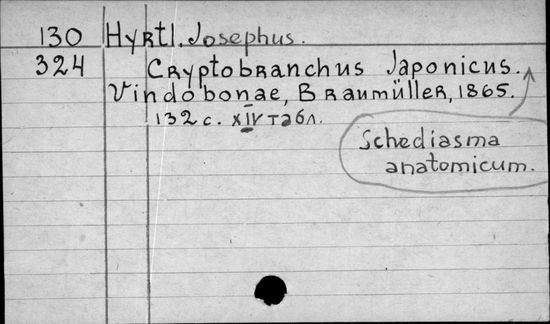 130 Hyrtl. Josephus.
324 Cryptobranchus Japonicus.
Vindobonae, Braumüller, 1865.
132 c. XIV табл.
Schediasma
anatomicum.